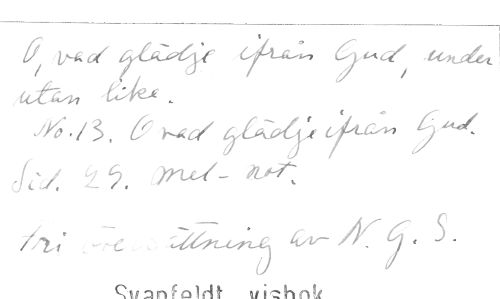 O, vad glädje ifrån Gud, under
utan like.
No. 13. O vad glädje ifrån Gud.
Sid. 29. Mel-not.
Fri översättning av N. G. S.
Svanfeldt visbok